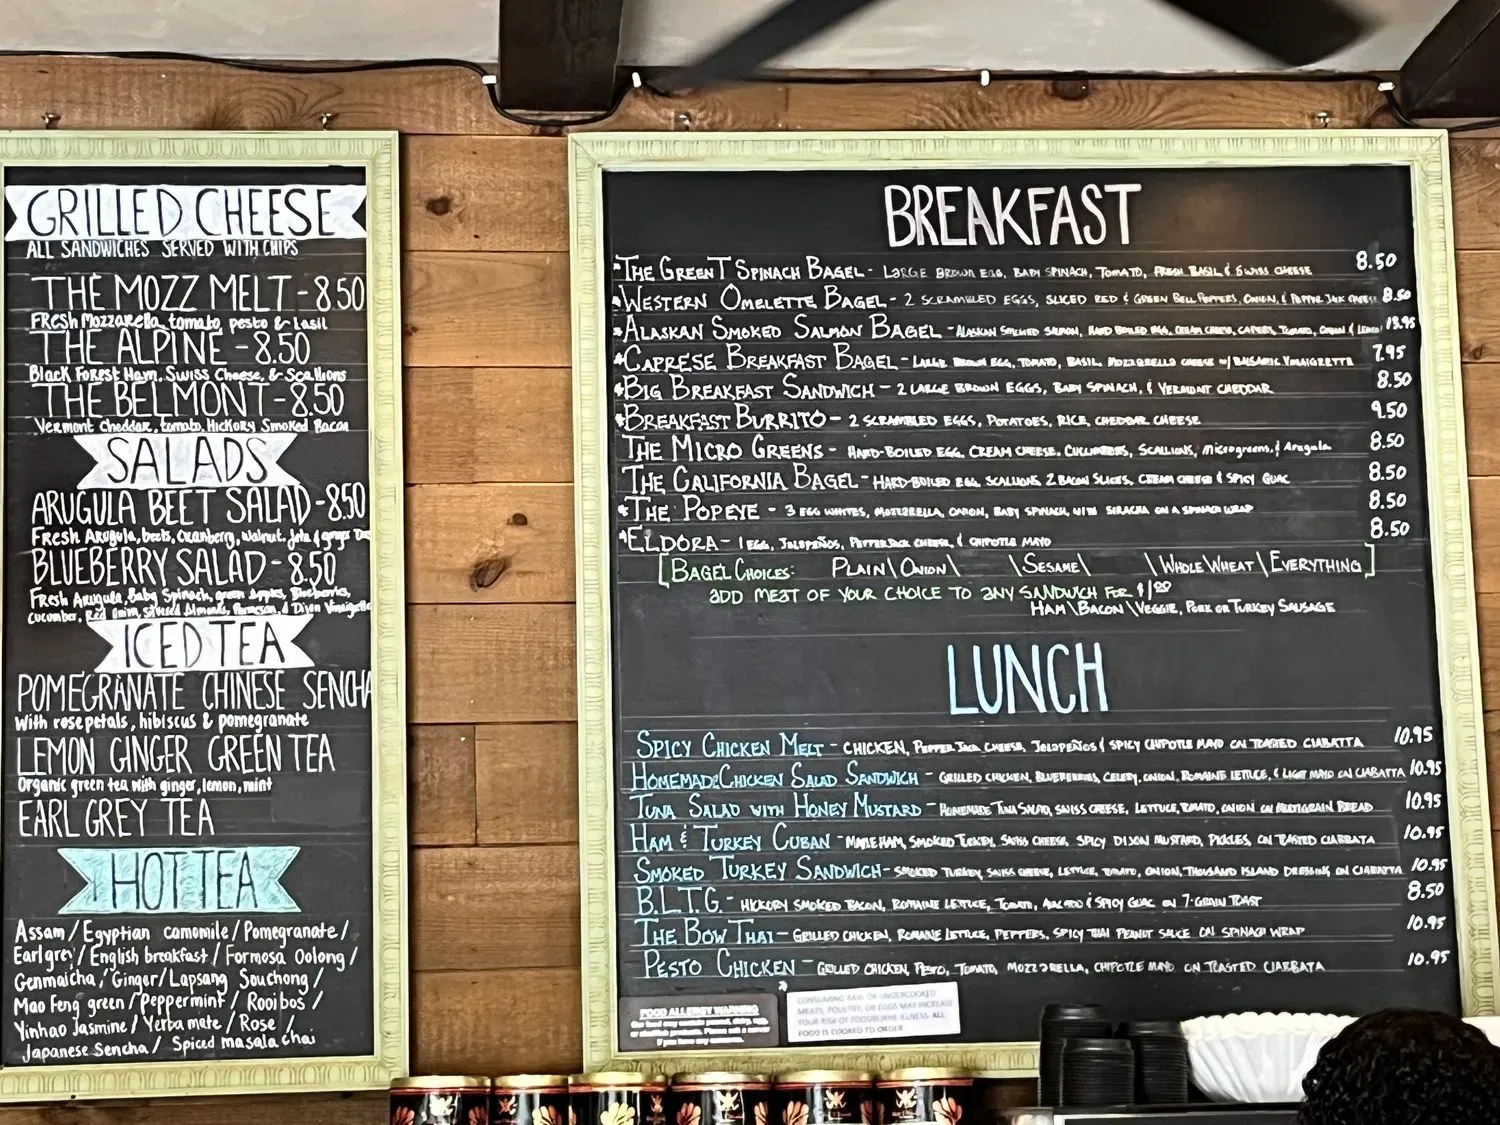 GRILLED CHEESE
ALL SANDWICHES SERVED WITH CHIPS
THE MOZZ MELT - 8.50
Fresh Mozzarella, tomato, pesto & basil
THE ALPINE - 8.50
Black Forest Ham, Swiss Cheese, & Scallions
THE BELMONT - 8.50
Vermont Cheddar, tomato, Hickory Smoked Bacon
SALADS
ARUGULA BEET SALAD - 8.50
Fresh Arugula, beets, cranberry, walnut, feta & ginger
BLUEBERRY SALAD - 8.50
Fresh Arugula, Baby Spinach, green Apples, Blueberries,
cucumber, Red Onion, Sliced Almonds, Parmesan, & Dijon
ICED TEA
POMEGRANATE CHINESE SENCHA
With rose petals, hibiscus & pomegranate
LEMON GINGER GREEN TEA
Organic green tea with ginger, lemon, mint
EARL GREY TEA
HOT TEA
Assam / Egyptian camomile / Pomegranate /
Earl grey / English breakfast / Formosa Oolong /
Genmaicha / Ginger / Lapsang Souchong /
Mao Feng green / Peppermint / Rooibos /
Yinhao Jasmine / Yerba mate / Rose /
Japanese Sencha / Spiced masala chai
BREAKFAST
*THE GREEN T SPINACH BAGEL - LARGE BROWN EGG, BABY SPINACH, TOMATO, FRESH BASIL & SWISS CHEESE 8.50
*WESTERN OMELETTE BAGEL - 2 SCRAMBLED EGGS, SLICED RED & GREEN BELL PEPPERS, ONION, & PEPPER JACK CHEESE 8.50
*ALASKAN SMOKED SALMON BAGEL - ALASKAN SMOKED SALMON, HARD BOILED EGG, CREAM CHEESE, CAPERS, TOMATO, ONION & LEMON 13.95
*CAPRESE BREAKFAST BAGEL - LARGE BROWN EGG, TOMATO, BASIL, MOZZARELLA CHEESE W/ BALSAMIC VINAIGRETTE 7.95
*BIG BREAKFAST SANDWICH - 2 LARGE BROWN EGGS, BABY SPINACH, & VERMONT CHEDDAR 8.50
*BREAKFAST BURRITO - 2 SCRAMBLED EGGS, POTATOES, RICE, CHEDDAR CHEESE 9.50
THE MICRO GREENS - HARD-BOILED EGG, CREAM CHEESE, CUCUMBERS, SCALLIONS, microgreens, & Arugula 8.50
THE CALIFORNIA BAGEL - HARD-BOILED EGG, SCALLIONS, 2 BACON SLICES, CREAM CHEESE & SPICY GUAC 8.50
*THE POPEYE - 3 EGG WHITES, MOZZARELLA, ONION, BABY SPINACH, WITH SIRACHA ON A SPINACH WRAP 8.50
*ELDORA - 1 EGG, JALEPEÑOS, PEPPER JACK CHEESE, & CHIPOTLE MAYO 8.50
[BAGEL CHOICES: PLAIN\ONION\ \SESAME\ \WHOLE WHEAT\EVERYTHING]
ADD MEAT OF YOUR CHOICE TO ANY SANDWICH FOR $1.00
HAM\BACON\VEGGIE, PORK OR TURKEY SAUSAGE
LUNCH
SPICY CHICKEN MELT - CHICKEN, PEPPER JACK CHEESE, JELOPEÑOS & SPICY CHIPOTLE MAYO ON TOASTED CIABATTA 10.95
HOMEMADE CHICKEN SALAD SANDWICH - GRILLED CHICKEN, BLUEBERRIES, CELERY, ONION, ROMAINE LETTUCE, & LIGHT MAYO ON CIABATTA 10.95
TUNA SALAD WITH HONEY MUSTARD - HOMEMADE TUNA SALAD, SWISS CHEESE, LETTUCE, TOMATO, ONION ON MULTIGRAIN BREAD 10.95
HAM & TURKEY CUBAN - MAPLE HAM, SMOKED TURKEY, SWISS CHEESE, SPICY DIJON MUSTARD, PICKLES, ON TOASTED CIABBATA 10.95
SMOKED TURKEY SANDWICH - SMOKED TURKEY, SWISS CHEESE, LETTUCE, TOMATO, ONION, THOUSAND ISLAND DRESSING ON CIABATTA 10.95
B.L.T.G. - HICKORY SMOKED BACON, ROMAINE LETTUCE, TOMATO, AVOCADO & SPICY GUAC ON 7-GRAIN TOAST 8.50
THE BOW THAI - GRILLED CHICKEN, ROMAINE LETTUCE, PEPPERS, SPICY THAI PEANUT SAUCE ON SPINACH WRAP 10.95
PESTO CHICKEN - GRILLED CHICKEN, PESTO, TOMATO, MOZZARELLA, CHIPOTLE MAYO ON TOASTED CIABBATA 10.95
FOOD ALLERGY WARNING
if you have any concerns.
CONSUMING RAW OR UNDERCOOKED
MEATS, POULTRY, OR EGGS MAY INCREASE
YOUR RISK OF FOODBORNE ILLNESS. ALL
FOOD IS COOKED TO ORDER